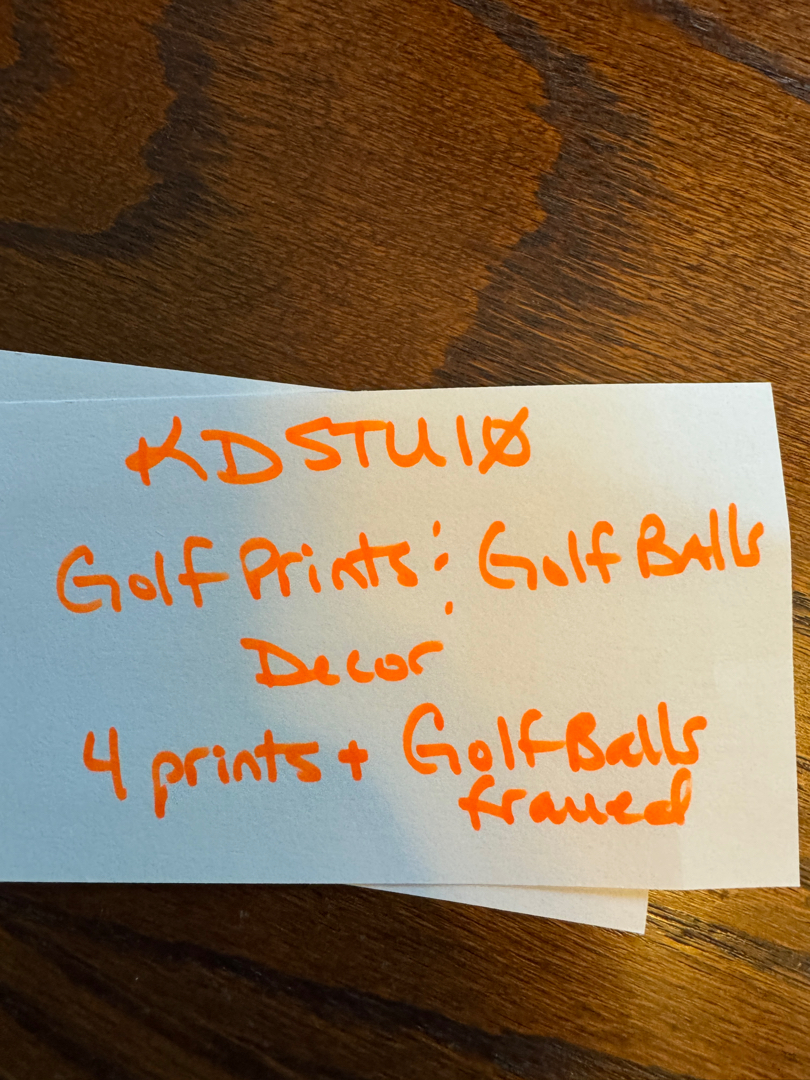 KDSTU10
Golf Prints: Golf Balls
Decor
4 prints + Golf Balls
framed